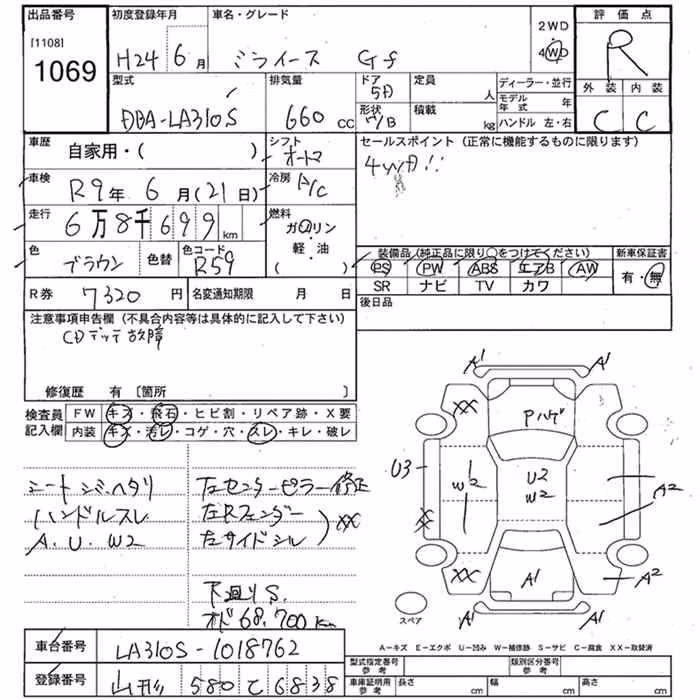 出品番号
[1108]
1069
初度登録年月
H24 6月
車名・グレード
ミライース Gf
2WD
4WD
評価点
R
外装 内装
C C
型式
DBA-LA310S
排気量
660 cc
ドア
5D
形状
H/B
定員
人
積載
kg
ディーラー・並行
モデル年式 年
ハンドル 左・右
車歴
自家用・( )
シフト
オートマ
セールスポイント (正常に機能するものに限ります)
4WD!!
車検
R9年 6月(21日)
冷房
A/C
走行
6万8千699 km
燃料
ガソリン
軽・油
( )
色
ブラウン
色替
色コード
R59
装備品 (純正品に限り○をつけてください)
PS PW ABS エアB AW
SR ナビ TV カワ
新車保証書
有・無
R券 7320円
名変通知期限 月 日
後日品
注意事項申告欄 (不具合内容等は具体的に記入して下さい)
CDデッキ故障
修復歴 有 [箇所 ]
検査員記入欄
FW キズ・飛石・ヒビ割・リペア跡・X要
内装 キズ・汚レ・コゲ・穴・スレ・キレ・破レ
シートシミ、ヘタリ
ハンドルスレ
A.U.W2
左センターピラー修正
左Rフェンダー
左サイドシル
XX
下廻りS.
オド68,700km
A1 A1
XX
Pハゲ
U3
W2
U2
W2
A2
XX
XX
A1
A2
A1 A1
スペア
A-キズ E-エクボ U-凹み W-補修跡 S-サビ C-腐食 XX-取替済
車台番号
LA310S-1018762
登録番号
山形 580 て 6838
型式指定番号
参考
類別区分番号
参考
車庫証明用
参考
長さ cm
幅 cm
高さ cm